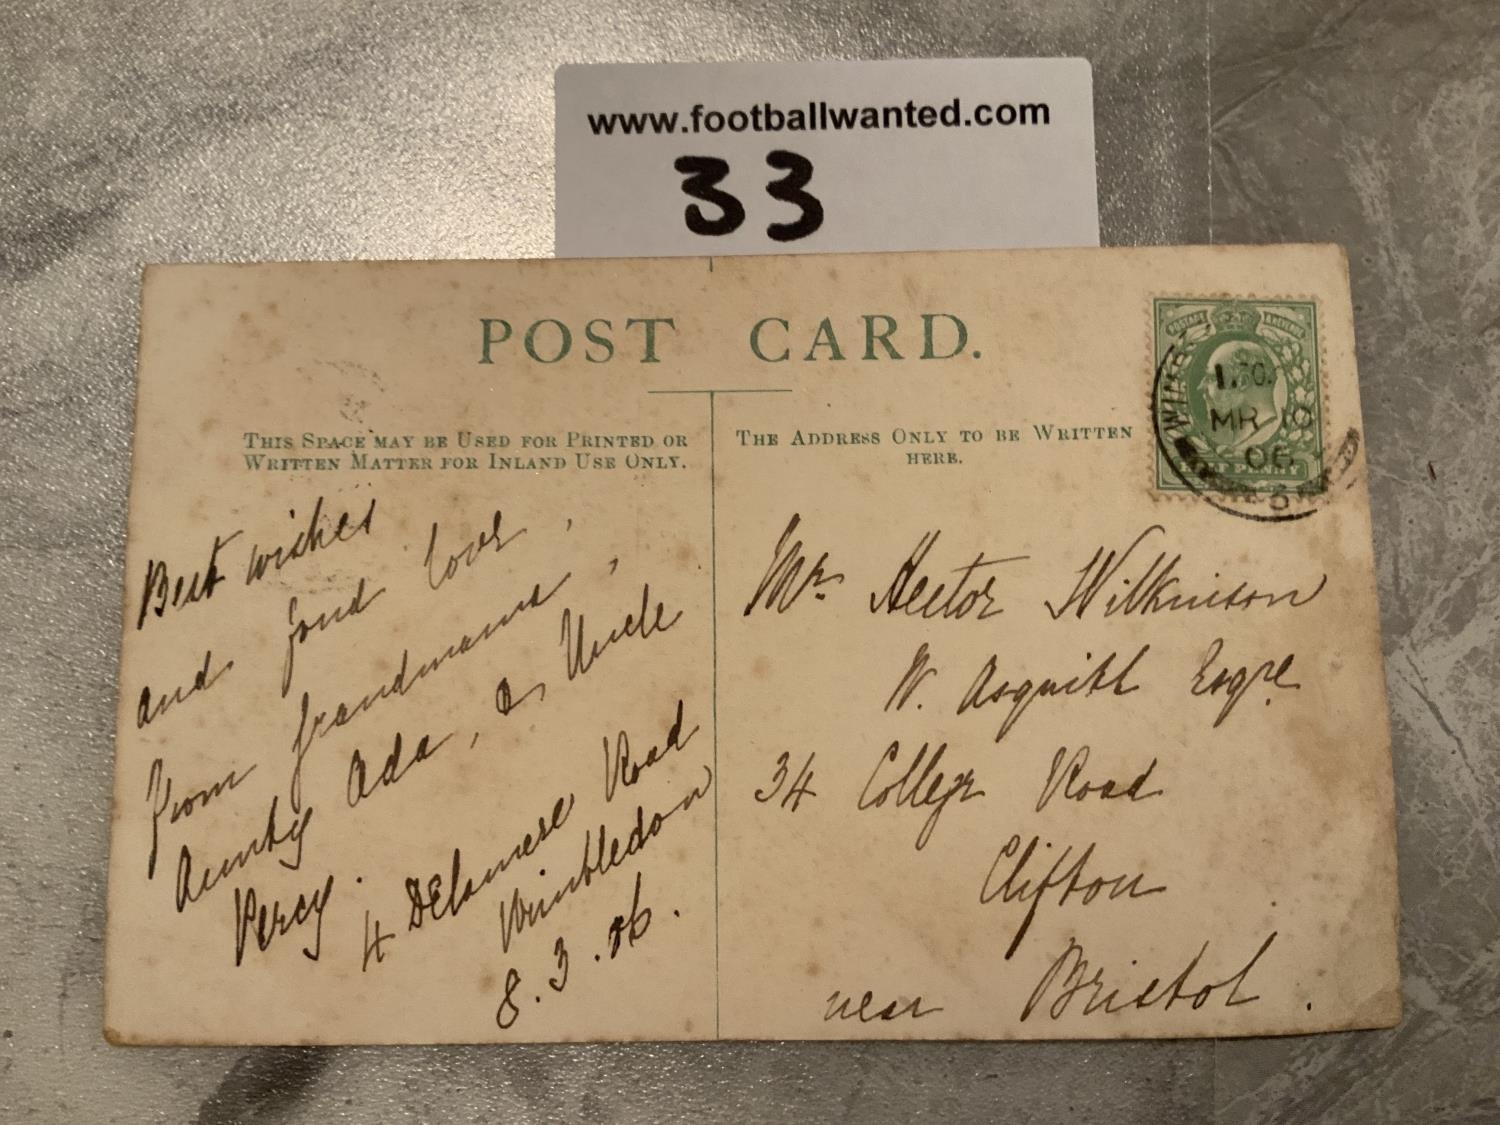 www.footballwanted.com
33
POST CARD.
THIS SPACE MAY BE USED FOR PRINTED OR
WRITTEN MATTER FOR INLAND USE ONLY.
THE ADDRESS ONLY TO BE WRITTEN
HERE.
POSTAGE & REVENUE
HALF PENNY
MR 10
06
Best wishes
and fond love,
from grandmama,
Aunty Ada, & Uncle
Percy.
4 Delamere Road
Wimbledon
8.3.06.
Mr Hector Wilkinson
W. Asquith Esqre
34 College Road
Clifton
near Bristol.